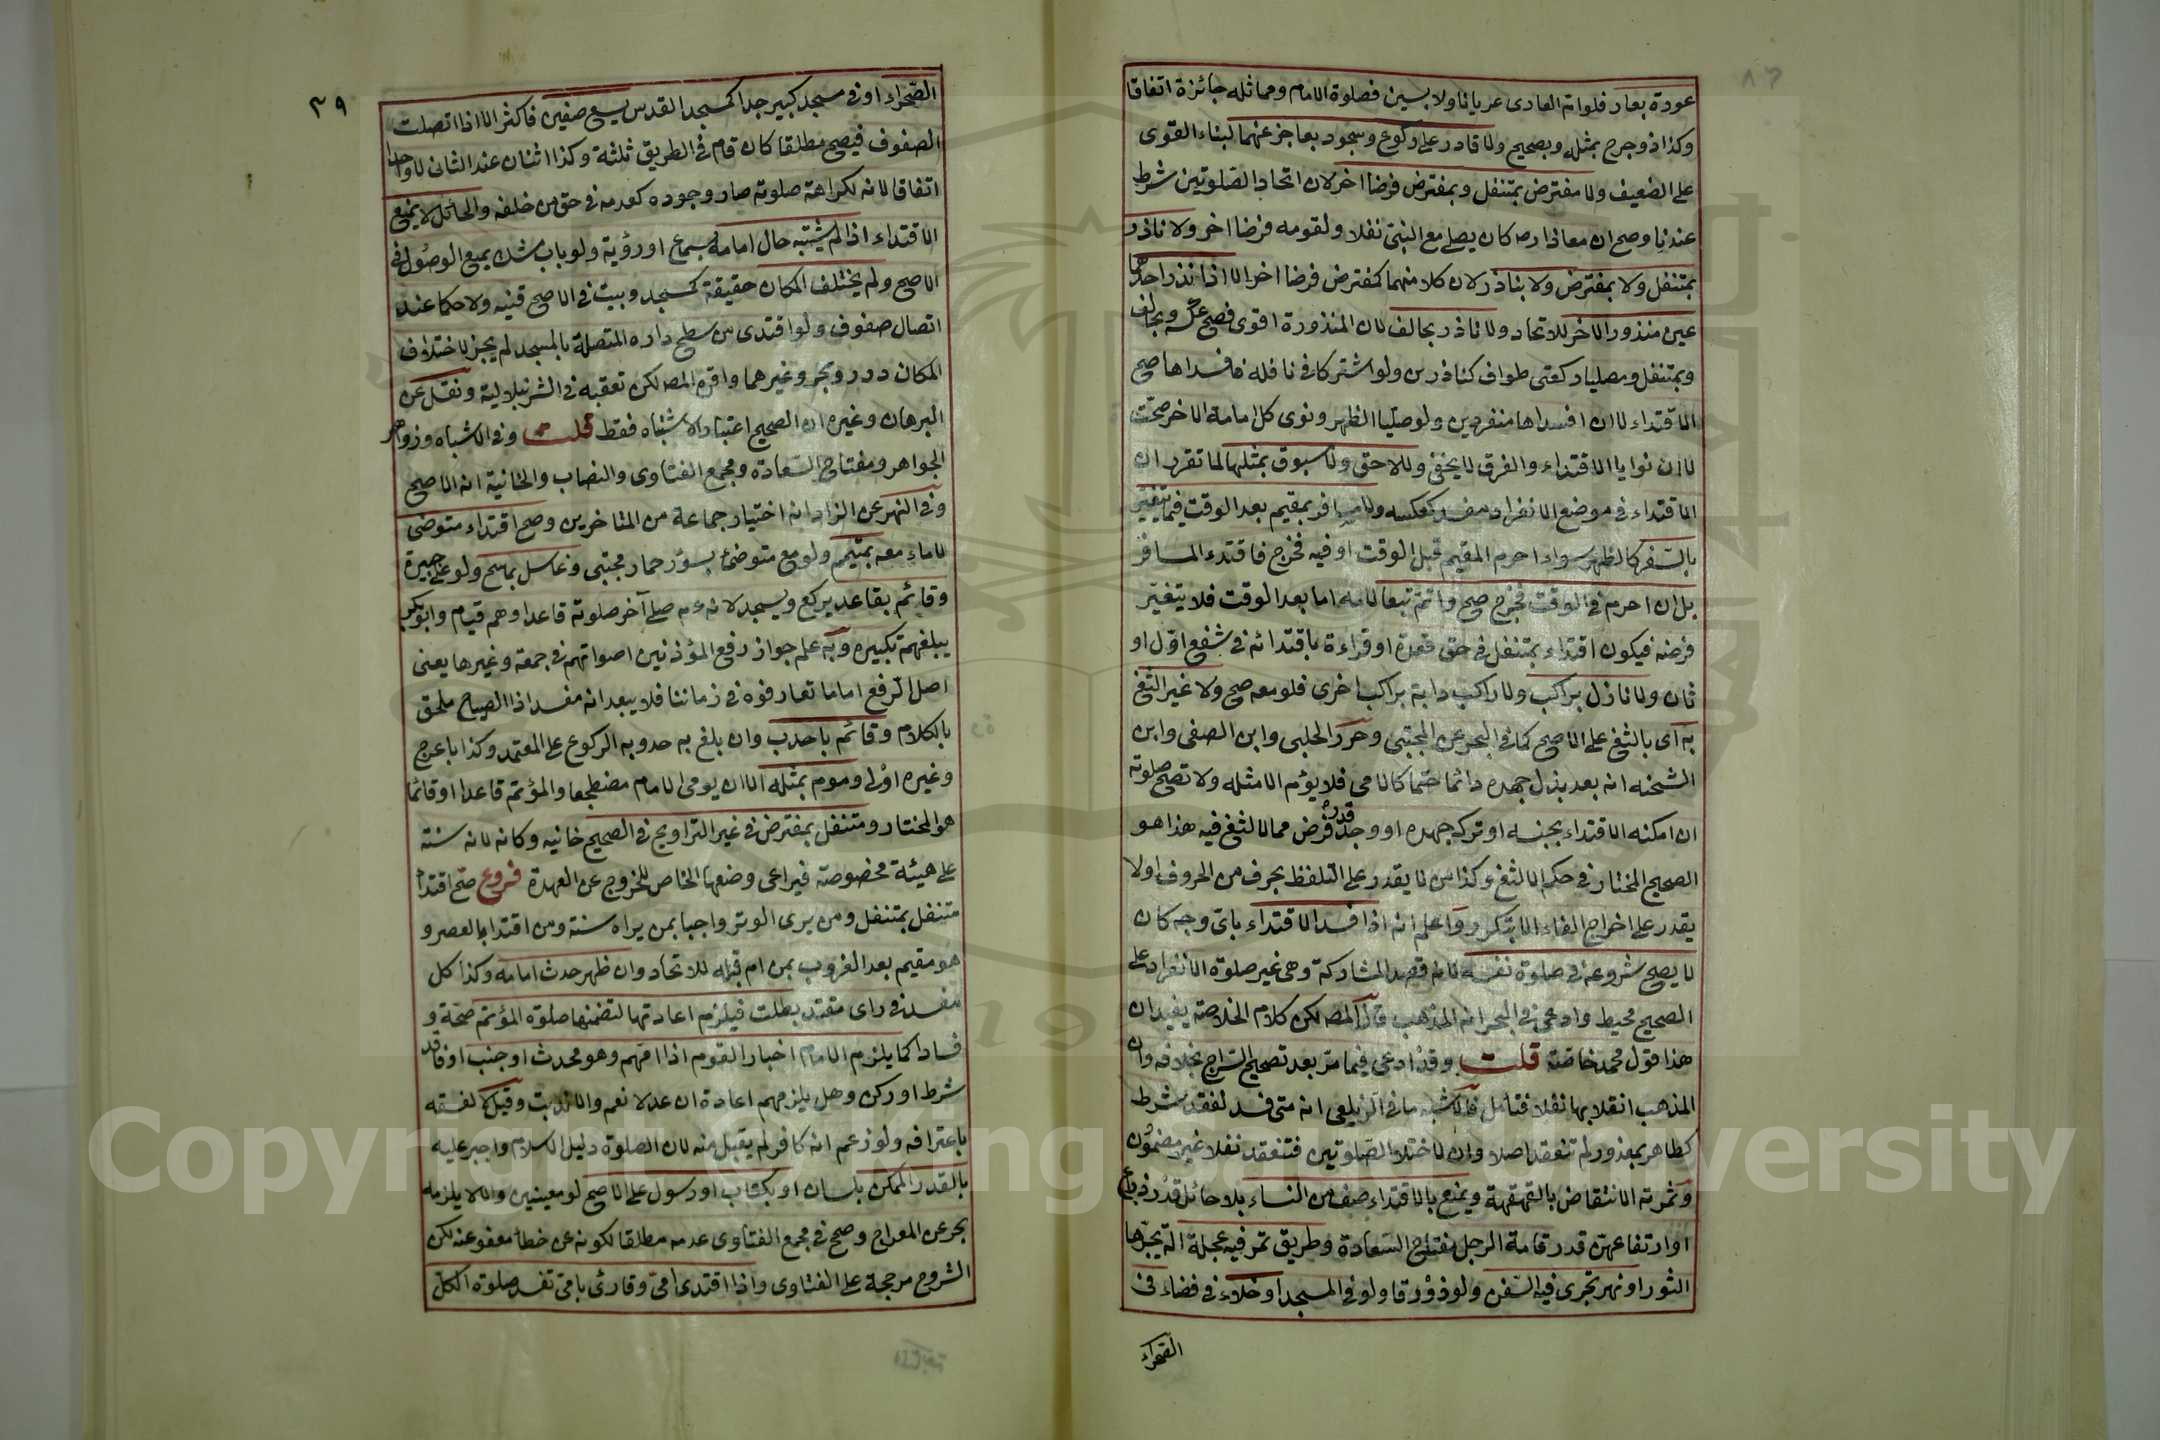 عورة بعار فلو ام العارى عريانا ولابسين فصلوة الامام ومماثله جائزة اتفاقا
وكذا ذو جرح بمثله وبصحيح ولا قادر على ركوع وسجود بعاجز عنهما لبناء القوى
على الضعيف ولا مفترض بمتنفل وبمفترض فرضا اخر لان اتحاد الصلوتين شرط
عندنا وصح ان معاذا رضه كان يصلى مع النبى نفلا ولقومه فرضا اخر ولا ناذر
بمتنفل ولا بمفترض ولا بناذر لان كلا منهما كمفترض فرضا اخر الا اذا نذر احدهما
عين منذور الاخر للاتحاد ولا ناذر بحالف لان المنذورة اقوى فصح عكسه وبحالف
وبمتنفل ومصليا ركعتى طواف كناذرين ولو اشتركا فى نافلة فافسداها صح
الاقتداء لا ان افسداها منفردين ولو صليا الظهر ونوى كل امامة الاخر صحت
لا ان نوايا الاقتداء والفرق لا يخفى وللاحق ولا مسبوق بمثلهما لما تقرر ان
الاقتداء فى موضع الانفراد مفسد كعكسه ولا مسافر بمقيم بعد الوقت فيما يتغير
بالسفر كالظهر سواء احرم المقيم قبل الوقت او فيه فخرج فاقتدء المسافر
بل ان احرم فى الوقت فخرج صح واتم تبعا لامامه اما بعد الوقت فلا يتغير
فرضه فيكون اقتداء بمتنفل فى حق قعدة او قراءة باقتدائه فى شفع اول او
ثان ولا نازل براكب ولا راكب دابة براكب اخرى فلو معه صح ولا غير الثغ
به اى بالثغ على الاصح كما فى البحر عن المجتبى وحرر الحلبى وابن
الشحنه انه بعد بذل جهده دائما حتما كالامى فلا يؤم الا مثله ولا تصح صلوته
ان امكنه الاقتداء بحسنه او ترك جهده او وجد قدر فرض مما لا لثغ فيه هذا هو
الصحيح المختار فى حكم الالثغ وكذا من لا يقدر على التلفظ بحرف من الحروف اولا
يقدر على اخراج الفاء الا بتكرر واعلم انه اذا فسد الاقتداء باى وجه كان
لا يصح شروعه فى صلوة نفسه لانه قصد المشاركة وهى غير صلوة الانفراد على
الصحيح محيط وادعى فى البحر انه المذهب قال المصه لكن كلام الخلاصة يفيد ان
هذا قول محمد خاصة قلت وقد ادعى فيما مر بعد تصحيح السراج بخلافه وان
المذهب انقلابها نفلا فتأمل فالاشبه ما فى الزيلعى انه متى فسد لفقد شرط
كطاهر بمعذور لم تنعقد اصلا وان لاختلاف الصلوتين فتنعقد نفلا غير مضمون
وثمرته الانتقاض بالقهقهة ويمنع بالاقتداء صف من النساء بلا حائل قدر ذراع
او ارتفاعهن قدر قامة الرجل مفتاح السعادة وطريق تمر فيه عجلة الة يجرها
الثور او نهر تجرى فيه السفن ولو زورقا ولو فى المسجد او خلاء فى فضاء فى
الصحراء
٣٩
الصحراء او فى مسجد كبير جدا كمسجد القدس يسع صفين فاكثر الا اذا اتصلت
الصفوف فيصح مطلقا كان قام فى الطريق ثلثة وكذا اثنان عند الثانى لا واحد
اتفاقا لانه لكراهة صلوته صار وجوده كعدمه فى حق من خلفه والحائل لا يمنع
الاقتداء اذا لم يشتبه حال امامه بسماع او رؤية ولو باب مشبك يمنع الوصول فى
الاصح ولم يختلف المكان حقيقة كمسجد وبيت فى الاصح قنيه ولا حكما عند
اتصال صفوف ولو اقتدى من سطح داره المتصلة بالمسجد لم يجز لاختلاف
المكان درر وبحر وغيرهما واقره المصه لكن تعقبه فى الشرنبلالية ونقل عن
البرهان وغيره ان الصحيح اعتبار الاشتباه فقط قلت وفى الاشباه وزواهر
الجواهر ومفتاح السعادة ومجمع الفتاوى والنصاب والخانية انه الاصح
وفى النهر عن الزاد انه اختيار جماعة من المتاخرين وصح اقتداء متوضئ
لا ماء معه بمتيمم ولو مع متوضئ بسؤر حمار مجتبى وغاسل بماسح ولو على جبيرة
وقائم بقاعد يركع ويسجد لانه عم صلى آخر صلوته قاعدا وهم قيام وابو بكر
يبلغهم تكبيره وبه علم جواز رفع المؤذنين اصواتهم فى جمعة وغيرها يعنى
اصل الرفع اما ما تعارفوه فى زماننا فلا يبعد انه مفسد اذ الصياح ملحق
بالكلام وقائم باحدب وان بلغ به حدوبه الركوع على المعتمد وكذا باعرج
وغيره اولى وموم بمثله الا ان يومى الامام مضطجعا والمؤتم قاعدا او قائما
هو المختار ومتنفل بمفترض فى غير التراويح فى الصحيح خانيه وكانه لانه سنة
على هيئة مخصوصة فيراعى وضعها الخاص للخروج عن العهدة فروع صح اقتداء
متنفل بمتنفل ومن يرى الوتر واجبا بمن يراه سنة ومن اقتدا بالعصر و
هو مقيم بعد الغروب بمن ام قبله للاتحاد وان ظهر حدث امامه وكذا كل
مفسد فى راى مقتد بطلت فيلزم اعادتها لتضمنها صلوة المؤتم صحة و
فسادا كما يلزم الامام اخبار القوم اذا امهم وهو محدث او جنب او فاقد
شرط او ركن وهل يلزمهم اعادة ان عدلا نعم والا ندبت وقيل لا لفسقه
باعترافه ولو زعم انه كافر لم يقبل منه لان الصلوة دليل الاسلام واجبر عليه
بالقدر الممكن بلسان او بكتاب او رسول على الاصح لو معينين والا لا يلزمه
بحر عن المعراج وصح فى مجمع الفتاوى عدمه مطلقا لكونه عن خطأ معفو عنه لكن
الشروح مرجحة على الفتاوى واذا اقتدى امى وقارئ بامى تفسد صلوة الكل
Copyright © King Saud University